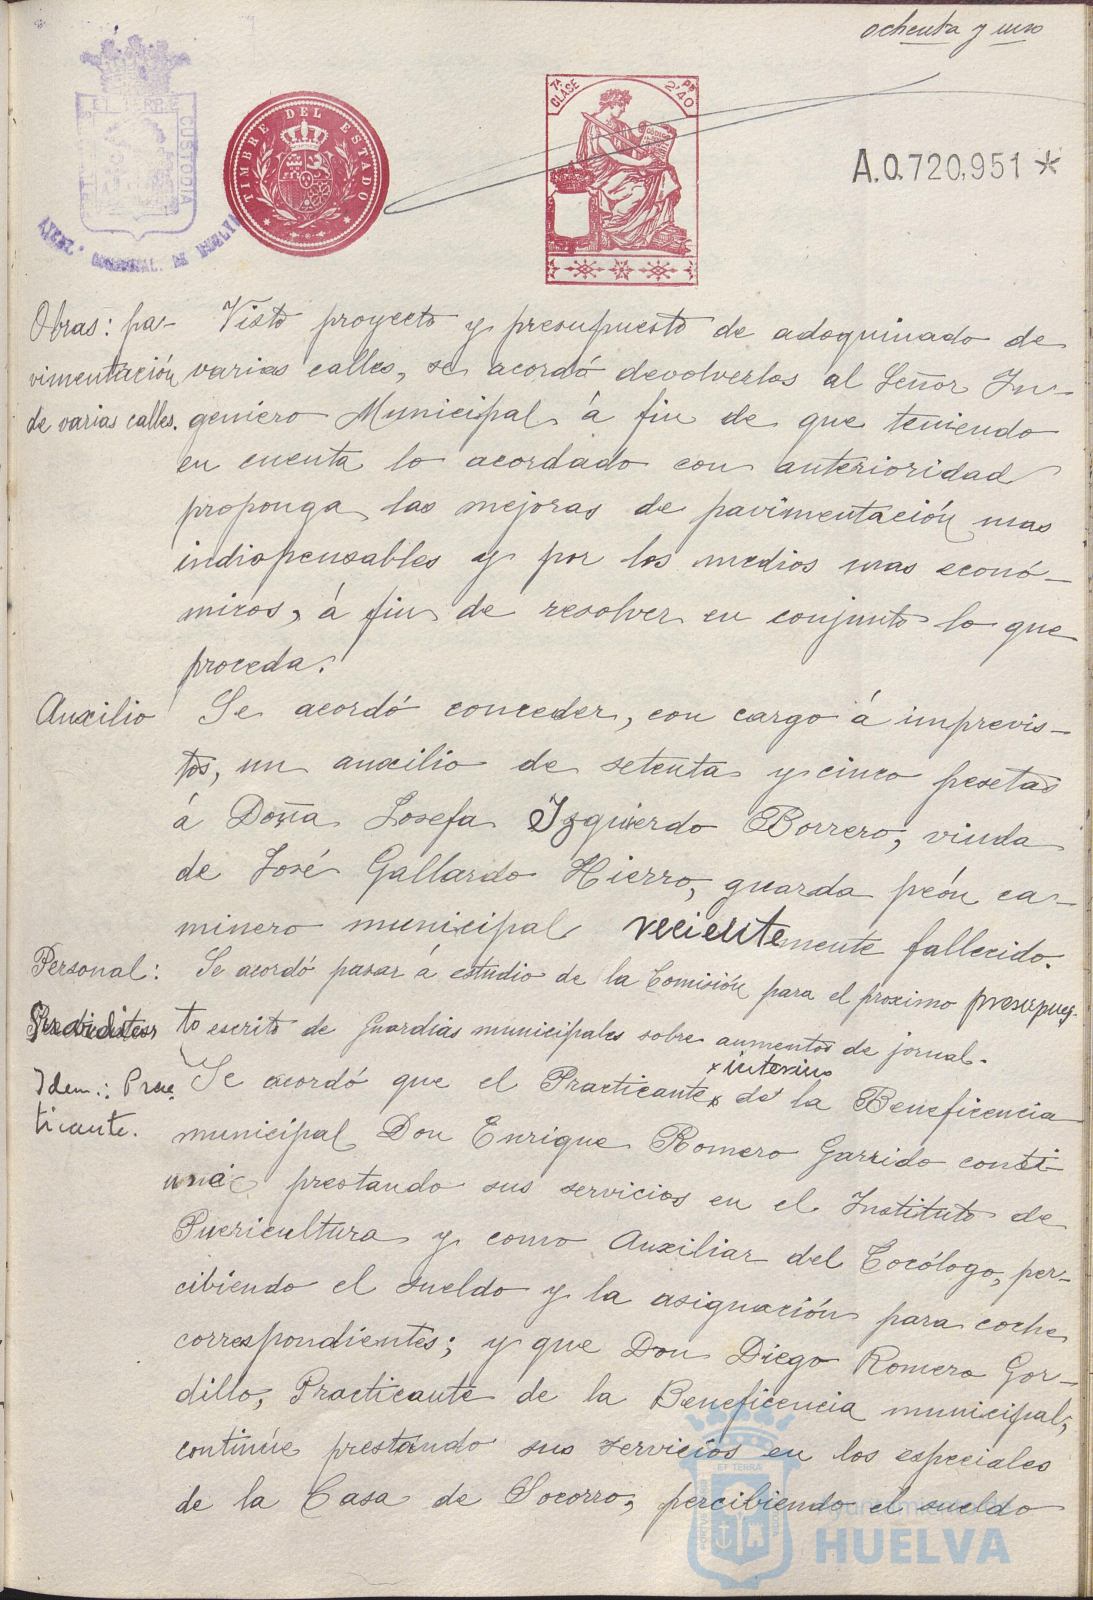 ochenta y uno
ET TERRE CUSTODIA
AYUNT. CONSTITUCIONAL DE HUELVA
TIMBRE DEL ESTADO
7ª CLASE
PS 2'40
CÓDIGO
A.0,720,951 *
Obras: pa-
vimentación
de varias calles.
Visto proyecto y presupuesto de adoquinado de
varias calles, se acordó devolverlos al Señor In-
geniero Municipal á fin de que teniendo
en cuenta lo acordado con anterioridad
proponga las mejoras de pavimentación mas
indispensables y por los medios mas econó-
micos, á fin de resolver en conjunto lo que
proceda.
Auxilio
Se acordó conceder, con cargo á imprevis-
tos, un auxilio de setenta y cinco pesetas
á Doña Josefa Izquierdo Borrero, viuda
de José Gallardo Hierro, guarda peón ca-
minero municipal recientemente fallecido.
Personal:
Se acordó pasar á estudio de la Comisión para el proximo presupues-
to escrito de Guardias municipales sobre aumentos de jornal.
Idem.: Prac
ticante.
× interino
Se acordó que el Practicante × de la Beneficencia
municipal Don Enrique Romero Garrido conti-
nué prestando sus servicios en el Instituto de
Puericultura y como Auxiliar del Tocólogo, per-
cibiendo el sueldo y la asignación para coche
correspondientes; y que Don Diego Romero Gor-
dillo, Practicante de la Beneficencia municipal,
continúe prestando sus servicios en los especiales
de la Casa de Socorro, percibiendo el sueldo
ET TERRA
Ayuntamiento de
HUELVA